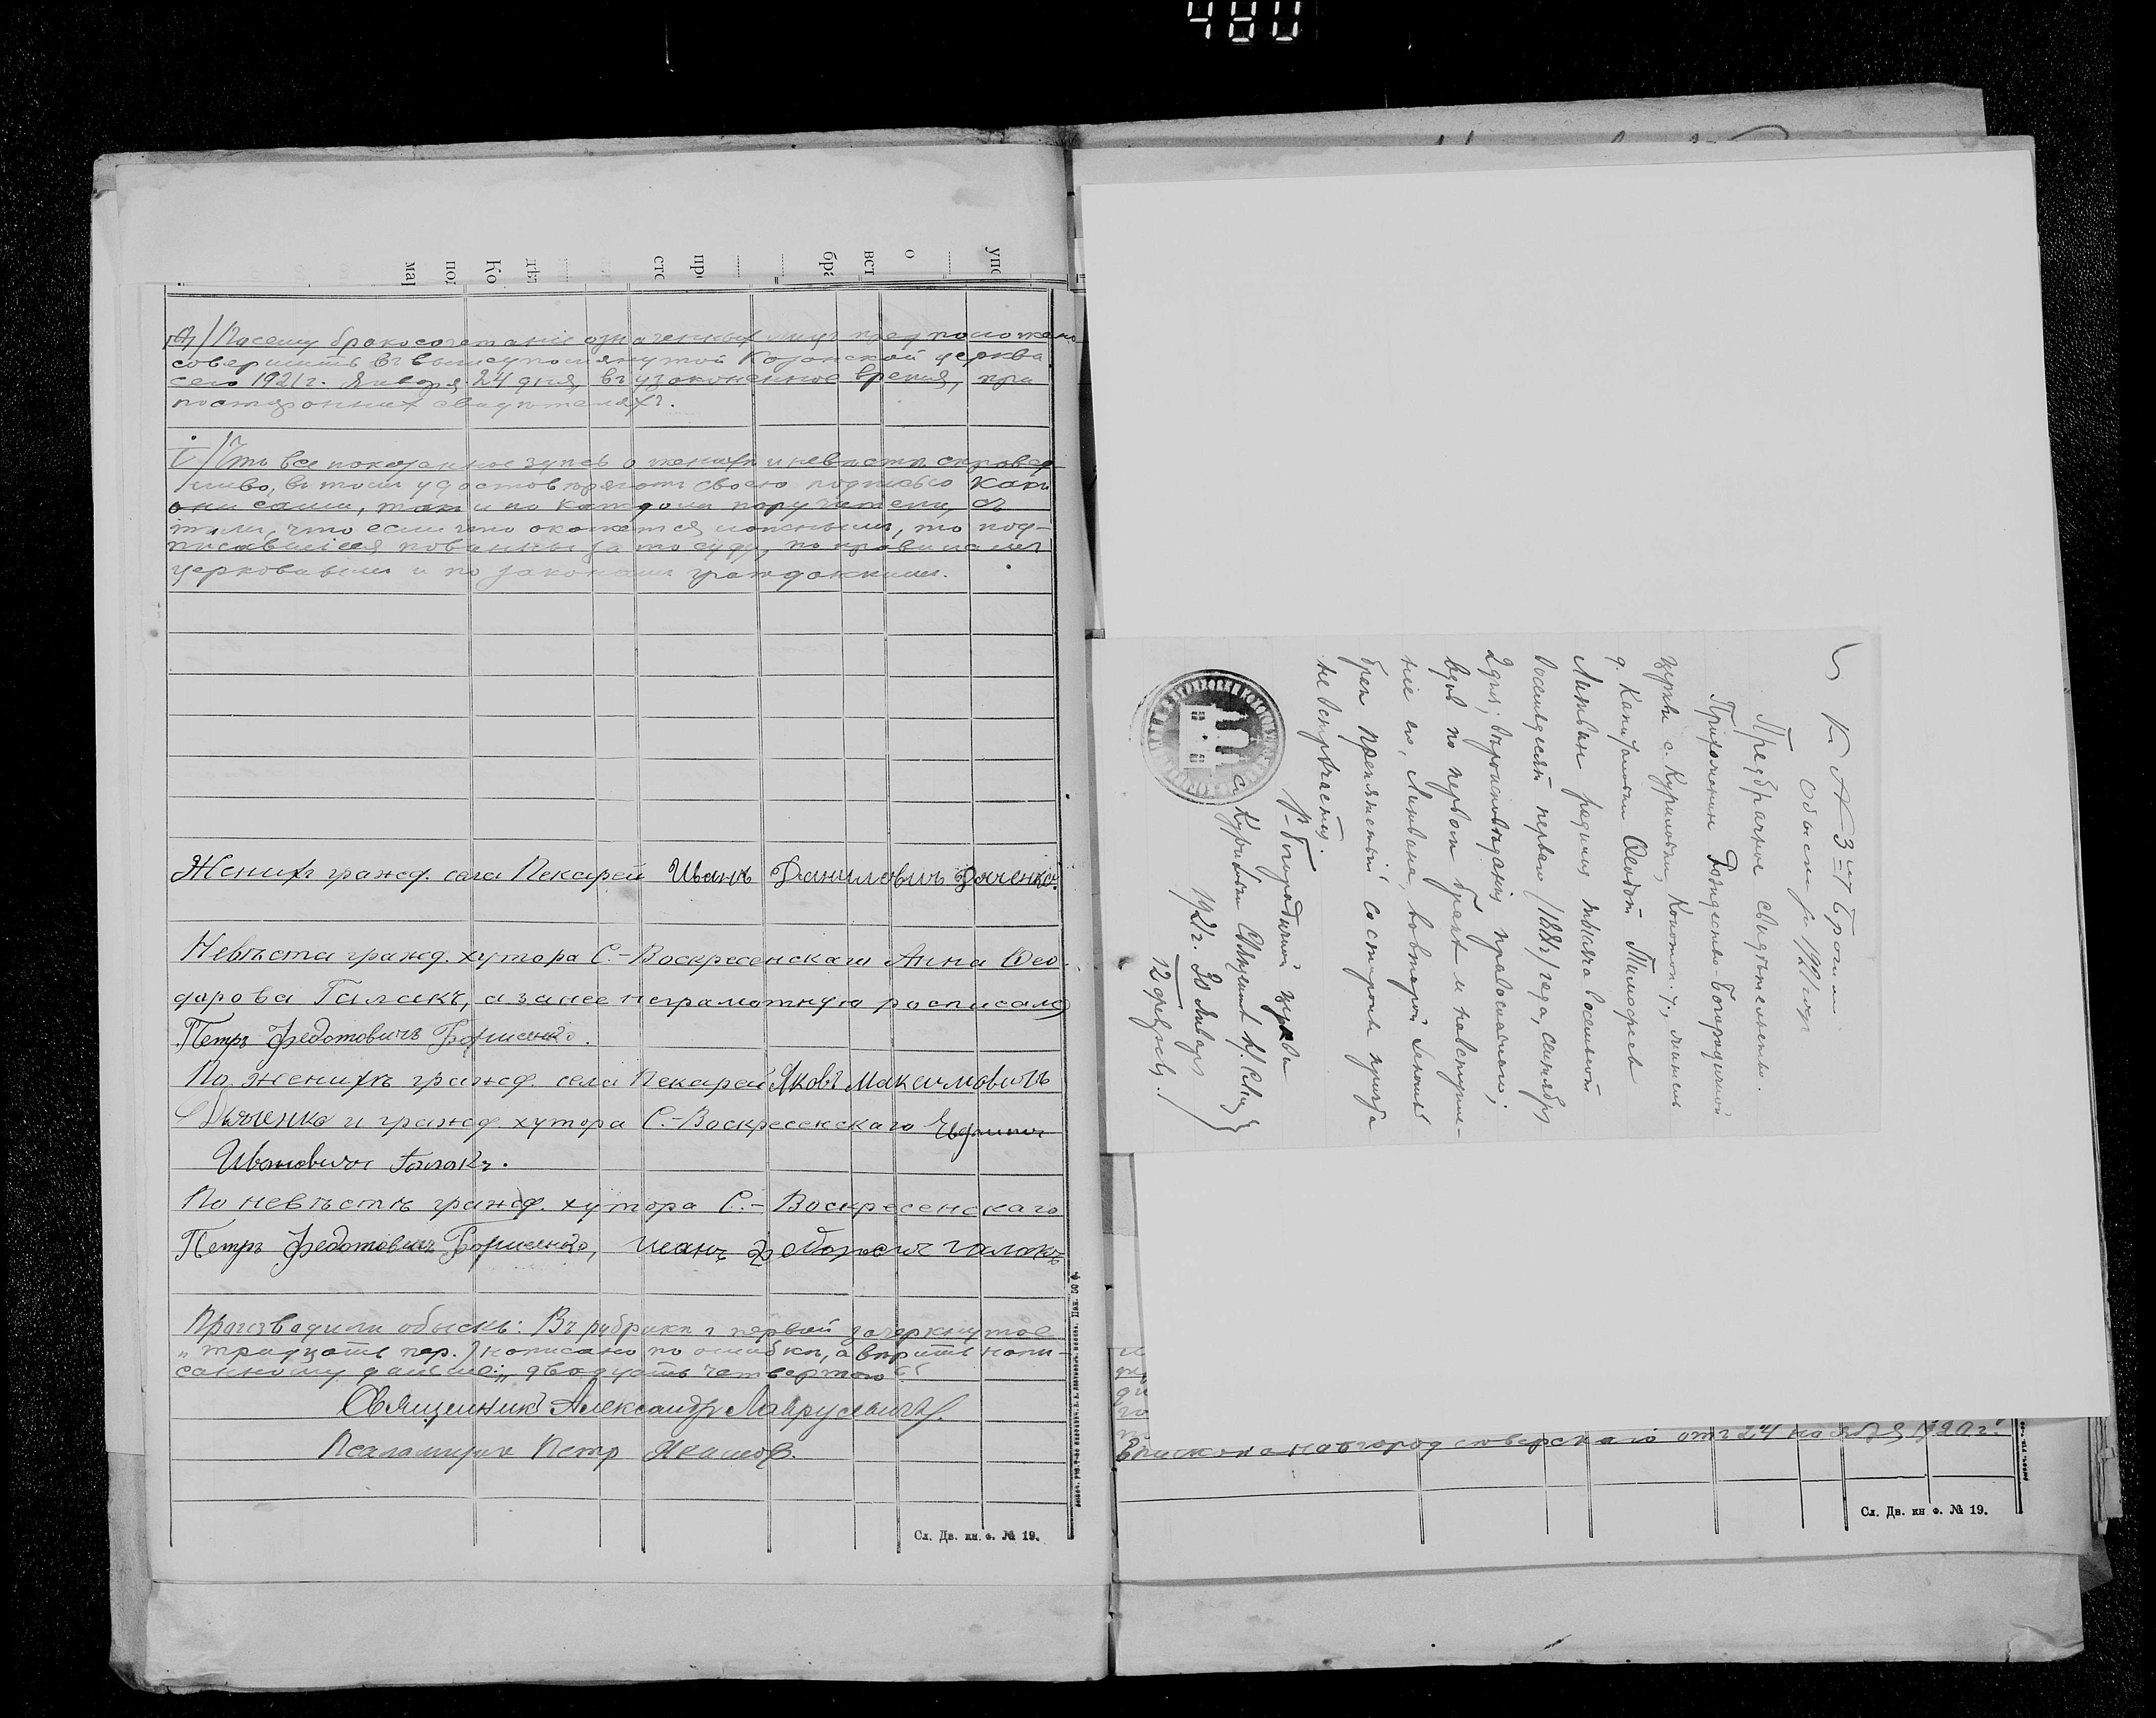 480
упо
о
вст
бра
пре
сто
дѣт
Ко
пол
ма
Ѳ) Посему бракосочетаніе означенныхъ лицъ предположено
совершить въ вышеупомянутой Казанской церкви
сего 1921 г. Января 24 дня, въ узаконенное время, при
постороннихъ свидѣтеляхъ.
і) Что все показанное здѣсь о женихѣ и невѣстѣ справед-
ливо, въ томъ удостовѣряютъ своею подписью какъ
они сами, такъ и по каждомъ поручители, съ
тѣмъ, что если что окажется ложнымъ, то под-
писавшіеся повинны за то суду, по правиламъ
церковнымъ и по законамъ гражданскимъ.
Женихъ гражд. села Пекарей Иванъ Даниловичъ Дяченко.
Невѣста гражд. хутора С.-Воскресенскаго Анна Ѳео-
дорова Галакъ, а за нее неграмотную росписался
Петръ Федотовичъ Борисенко.
По женихѣ гражд. села Пекарей Яковъ Максимовичъ
Дяченко и гражд. хутора С.-Воскресенскаго
Ивановичъ Галакъ.
По невѣстѣ гражд. хутора С.-Воскресенскаго
Петръ Федотовичъ Борисенко, Иванъ Федоровичъ Галакъ
Производили обыскъ: Въ рубрикѣ г первой зачеркнутое
„тридцать пер.) написано по ошибкѣ, а вѣрить напи-
санному дальше: „двадцать четвертаго“
Священникъ Александръ
Псаломщикъ Петр Якимов.
Сл. Дв. кн. Ф. № 19.
К № 3 му Брачном
обыску 1921 году
Предбрачное свидѣтельство.
Прихожанин Рождество-Богородичной
церкви с. Куриловки, Конотоп. у., житель
д. Ѳеодот Тимофеев
Литвин родился тысяча восемьсот
восемьдесят первого /1881/ года, сентября
2 дня; вѣроисповѣдания православного;
вдов по первом браке и на вступле-
ние его, Литвина, во второй законный
брак препятствий со стороны причта
не встрѣчается.
Р.-Богородичной церкви
с. Куриловки Священник
1921 г. 30 Января
12 февраля
Епископа Новгородсѣверскаго отъ 24 ноября 1920 г.
Сл. Дв. кн. Ф. № 19.